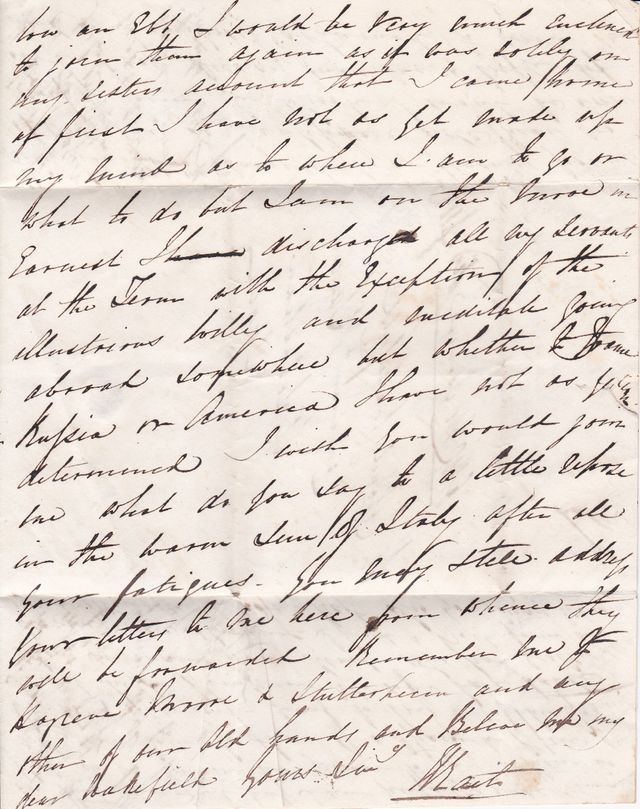 low an Ebb I would be very much enclined
to join them again as it was solely on
my sisters account that I came home
at first I have not as yet made up
my mind as to where I am to go or
what to do but I am on the move in
Earnest I discharged all my Servants
at the Term with the Exception of the
illustrious Willy and meditate going
abroad somewhere but whether to
Russia or America I have not as yet
determined I wish you would join
me what do you say to a little repose
in the warm Sun of Italy after all
your fatigues. You may still address
your letters to me here from whence they
will be forwarded Remember me to
Moore & Stutterheim and any
other of our old friends and Believe me my
dear Wakefield yours Siny